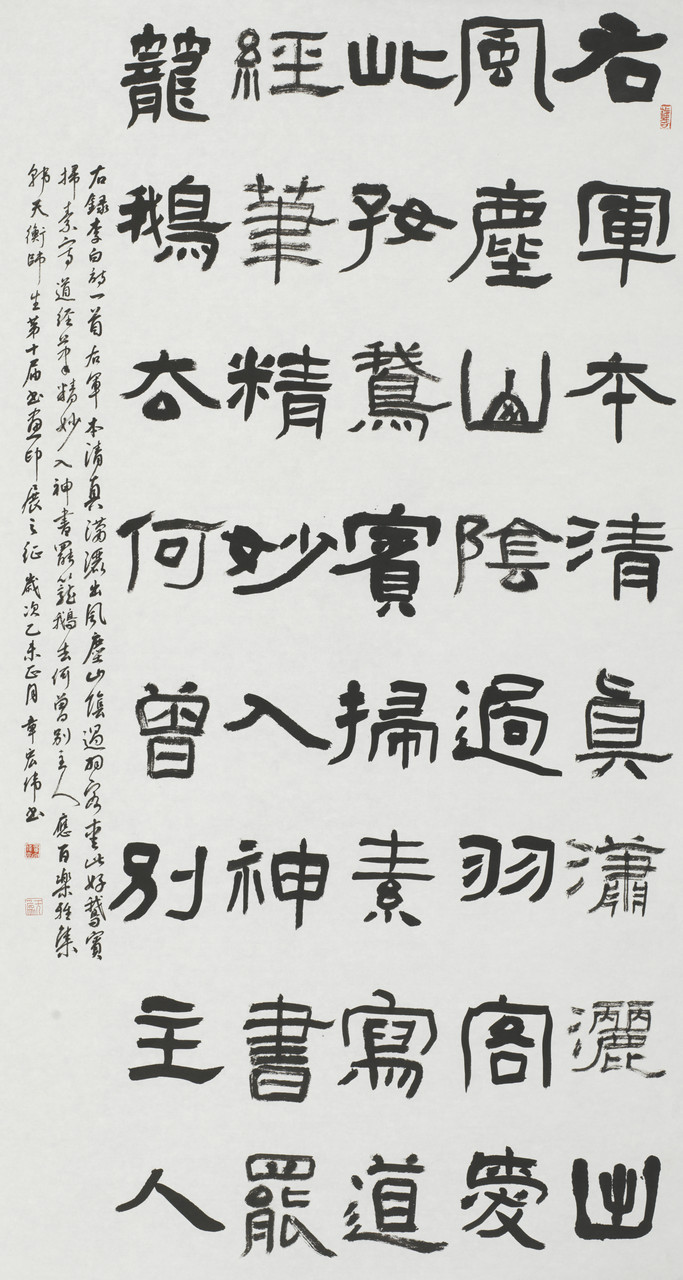 右軍本清真瀟灑出
風塵山陰過羽客愛
此好鵞賓掃素寫道
經筆精妙入神書罷
籠鵝去何曾別主人
右録李白詩一首右軍本清真瀟灑出風塵山陰過羽客愛此好鵞賓
掃素寫道經筆精妙入神書罷籠鵝去何曾別主人應百樂雅集
韩天衡師生第十届书畫印展之征歲次乙未正月章宏伟书